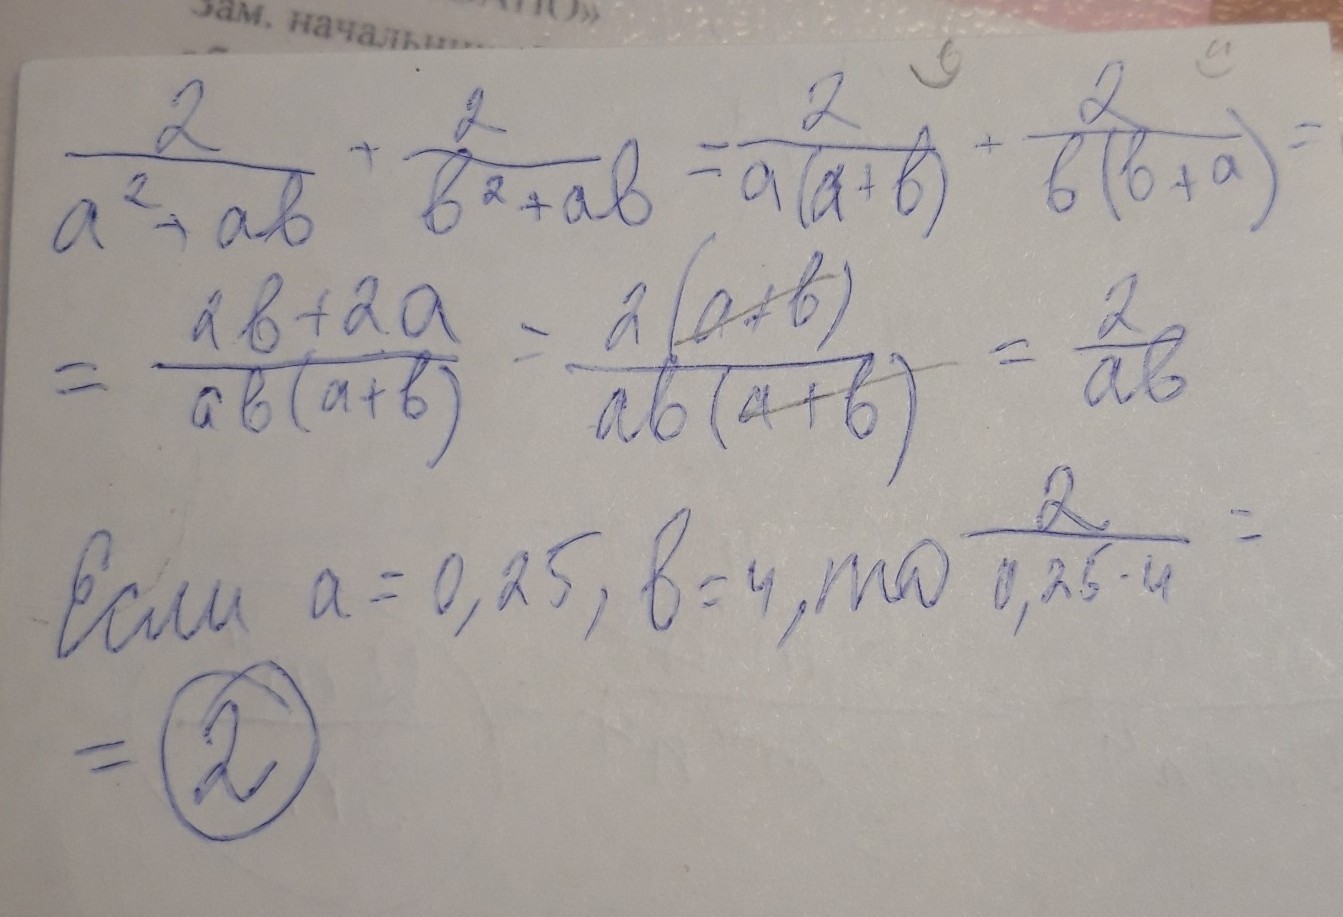 Зам. начальни
2/(a² + ab) + 2/(b² + ab) = 2/(a(a + b)) + 2/(b(b + a)) =
= (2b + 2a)/(ab(a + b)) = 2(a + b)/(ab(a + b)) = 2/(ab)
Если a = 0,25, b = 4, то 2/(0,25 · 4) =
= 2